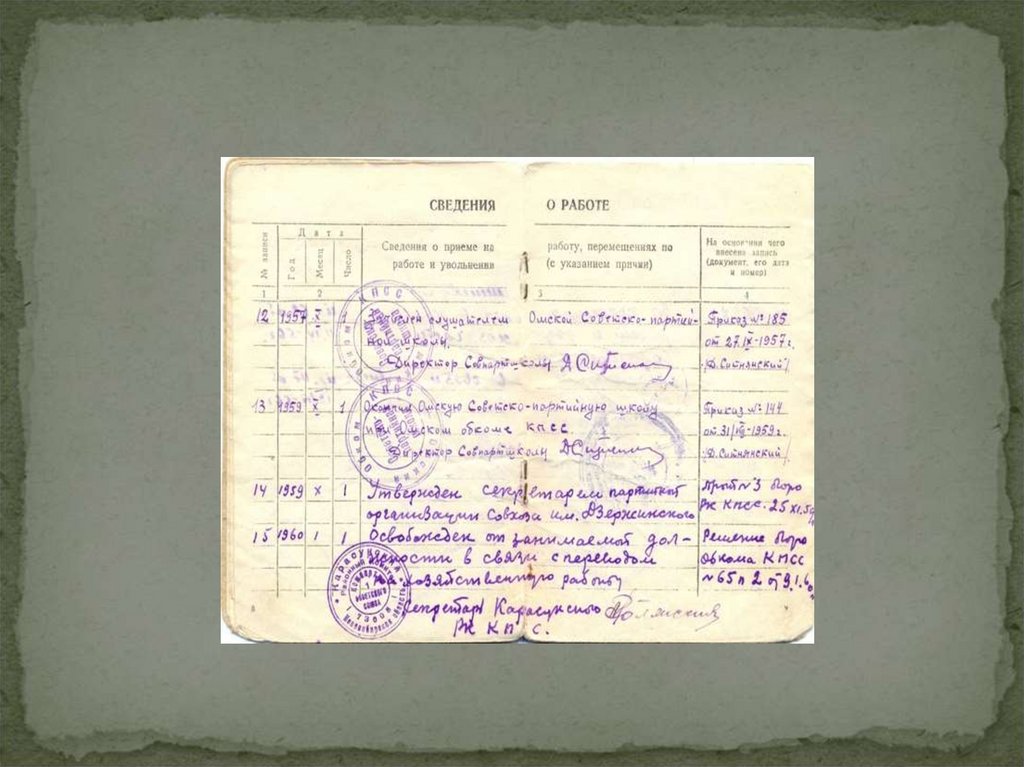 СВЕДЕНИЯ О РАБОТЕ
№ записи
Дата
Год
Месяц
Число
Сведения о приеме на работу, перемещениях по
работе и увольнении (с указанием причин)
На основании чего
внесена запись
(документ, его дата
и номер)
1 2 3 4
12 1957 X 1 слушателем Омской Советско-партий- Приказ № 185
ной школы. от 27.IX-1957 г.
Директор Совпартшколы /Д. Ситнянский/
13 1959 X 1 Окончил Омскую Советско-партийную школу Приказ № 144
при Омском обкоме КПСС. от 31/VIII-1959 г.
Директор Совпартшколы /Д. Ситнянский/
14 1959 X 1 Утвержден секретарем партийной Прот № 3 бюро
организации Совхоза им. Дзержинского РК КПСС. 25 XI.59
15 1960 1 1 Освобожден от занимаемой дол- Решение бюро
жности в связи с переводом Обкома КПСС
хозяйственную работу № 65 п 2 от 9.1.60
Секретарь Карасукского
РК КПСС.